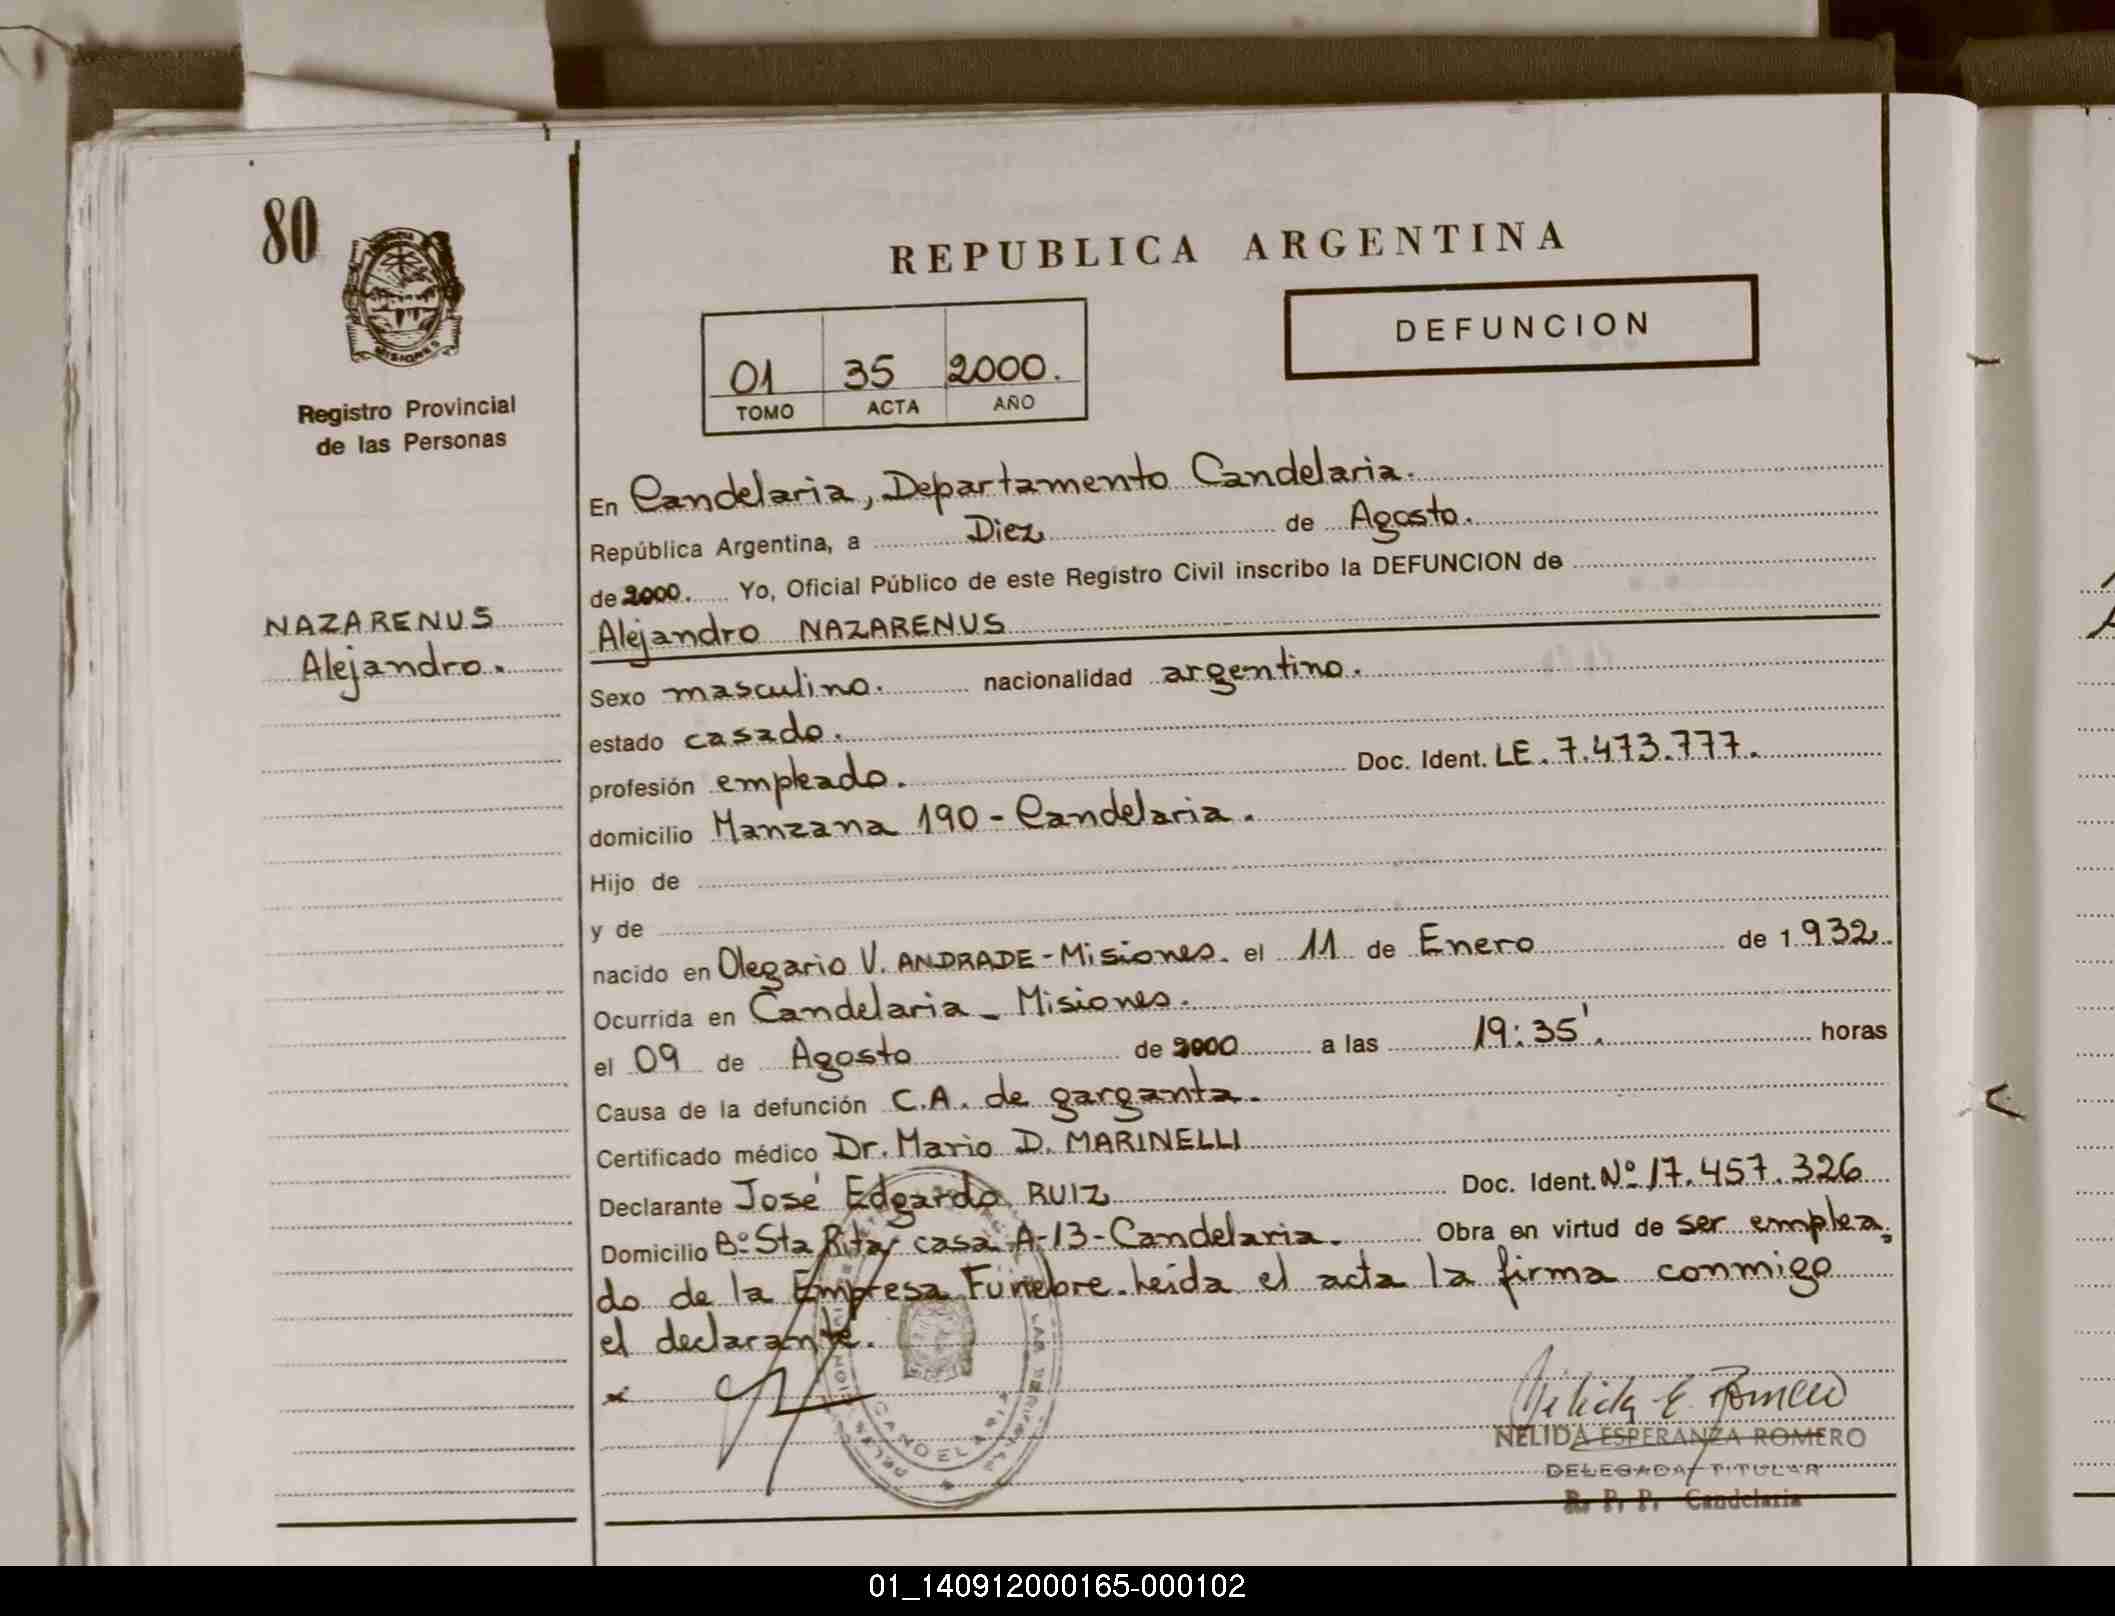 80
MISIONES
Registro Provincial
de las Personas
NAZARENUS
Alejandro.
REPUBLICA ARGENTINA
DEFUNCION
01 35 2000.
TOMO ACTA AÑO
En Candelaria, Departamento Candelaria.
República Argentina, a Diez de Agosto.
de 2000. Yo, Oficial Público de este Registro Civil inscribo la DEFUNCION de
Alejandro NAZARENUS
Sexo masculino. nacionalidad argentino.
estado casado.
profesión empleado. Doc. Ident. LE. 7.473.777.
domicilio Manzana 190 - Candelaria.
Hijo de
y de
nacido en Olegario V. ANDRADE - Misiones. el 11 de Enero de 1.932.
Ocurrida en Candelaria - Misiones.
el 09 de Agosto de 2000 a las 19:35'. horas
Causa de la defunción C.A. de garganta.
Certificado médico Dr. Mario D. MARINELLI
Declarante José Edgardo RUIZ Doc. Ident. Nº 17.457.326
Domicilio Bº Sta Rita casa A-13 - Candelaria. Obra en virtud de ser emplea
do de la Empresa Fúnebre. Leida el acta la firma conmigo
el declarante.
x
CANDELARIA
Nelida E. Romero
NELIDA ESPERANZA ROMERO
DELEGADA TITULAR
R. P. P. Candelaria
01_140912000165-000102